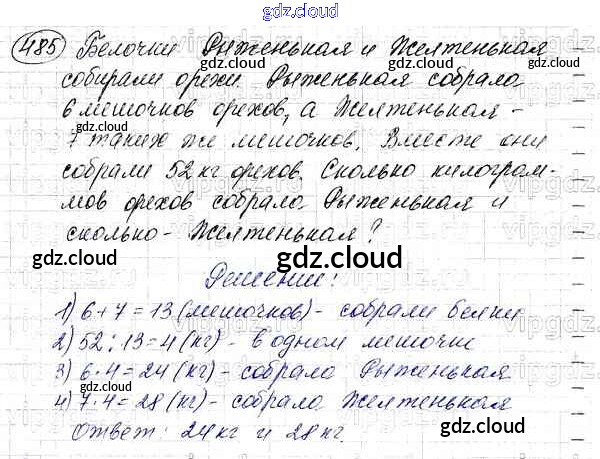 gdz.cloud
485 Белочки Рыженькая и Желтенькая
собирали орехи. Рыженькая собрала
6 мешочков орехов, а Желтенькая -
7 таких же мешочков. Вместе они
собрали 52 кг орехов. Сколько килограм-
мов орехов собрала Рыженькая и
сколько - Желтенькая?
Решение:
1) 6 + 7 = 13 (мешочков) - собрали белки
2) 52 : 13 = 4 (кг) - в одном мешочке
3) 6 · 4 = 24 (кг) - собрала Рыженькая
4) 7 · 4 = 28 (кг) - собрала Желтенькая
Ответ: 24 кг и 28 кг.